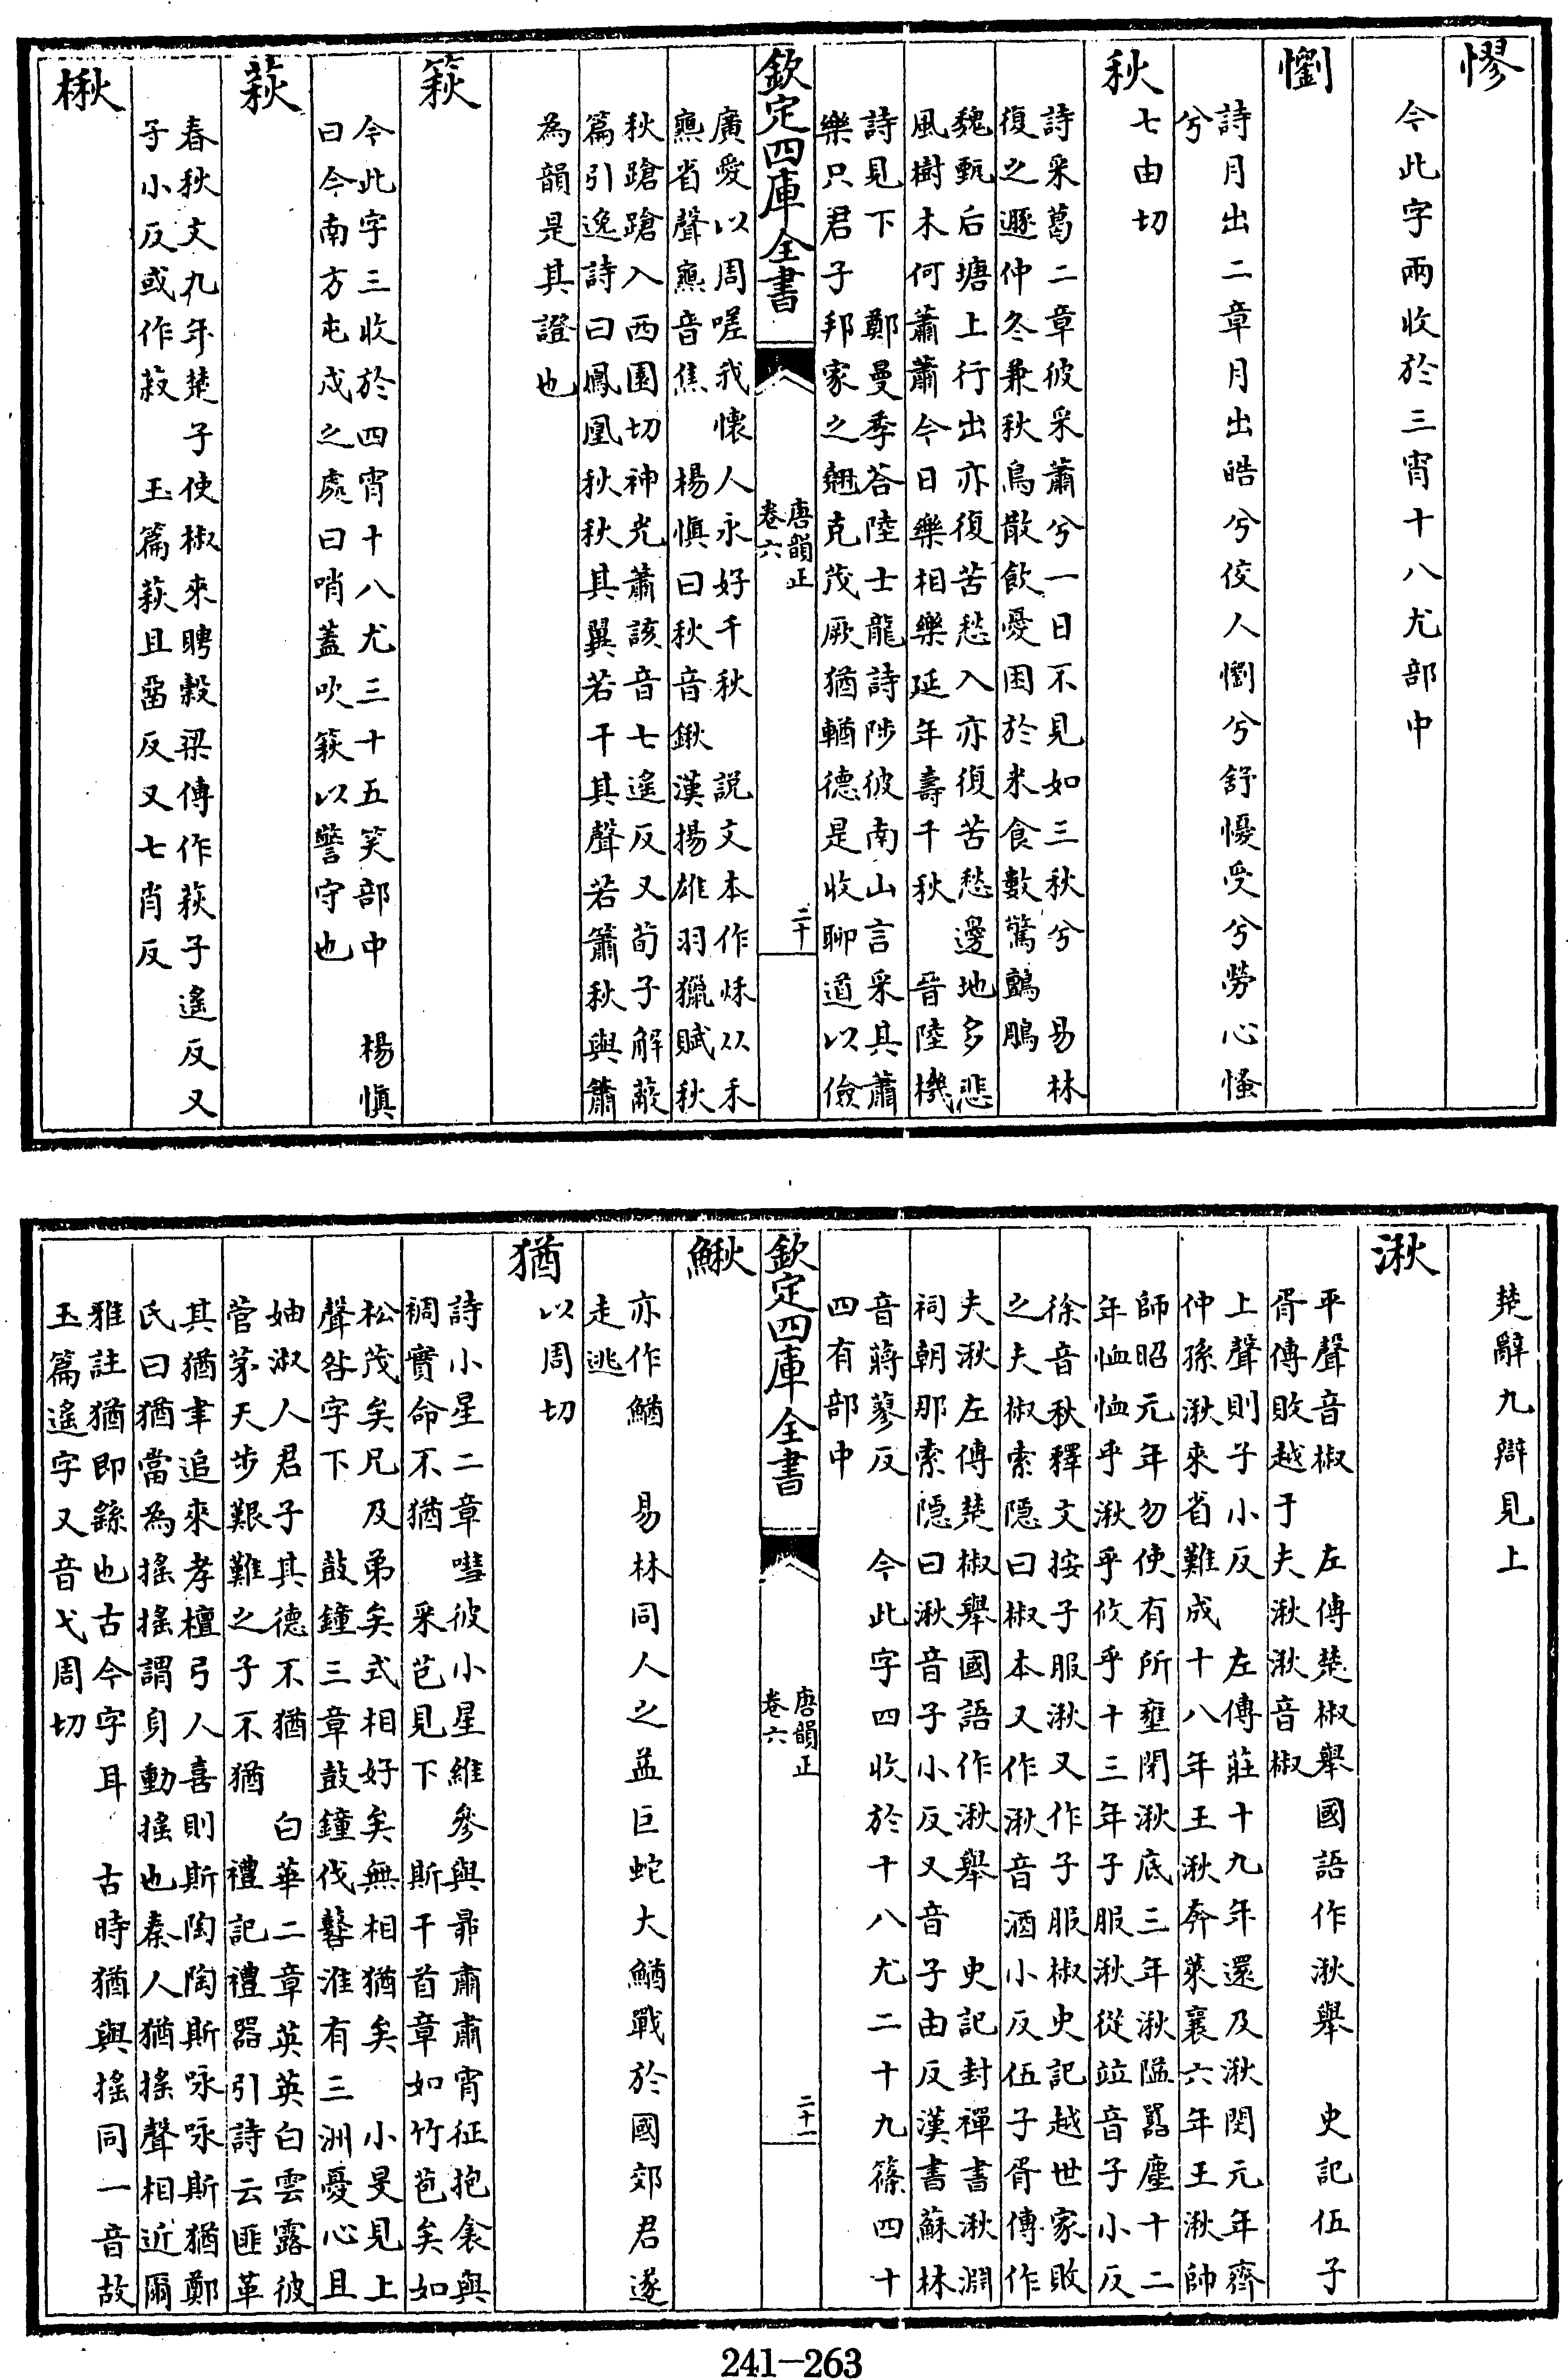 憀
今此字兩收於三宵十八尤部中
懰
詩月出二章月出皓兮佼人懰兮舒懮受兮勞心慅
兮
秋
七由切
詩采葛二章彼采蕭兮一日不見如三秋兮　易林
復之遯仲冬兼秋鳥散飲憂困於米食數驚鸇鵰
魏甄后塘上行出亦復苦愁入亦復苦愁邊地多悲
風樹木何蕭蕭今日樂相樂延年壽千秋　晉陸機
詩見下　鄭曼季答陸士龍詩陟彼南山言采其蕭
樂只君子邦家之翹克茂厥猶輶德是收聊道以儉
欽定四庫全書
唐韻正
卷六
二十
廣愛以周嗟我懷人永好千秋　説文本作秌从禾
𤒅省聲𤒅音焦　楊慎曰秋音鍬漢揚雄羽獵賦秋
秋蹌蹌入西園切神光蕭該音七遙反又荀子解蔽
篇引逸詩曰鳳凰秋秋其翼若干其聲若簫秋與簫
為韻是其證也
篍
今此字三收於四宵十八尤三十五笑部中　楊慎
曰今南方屯戍之處曰哨蓋吹篍以警守也
萩
春秋文九年楚子使椒來聘穀梁傳作萩子遙反又
子小反或作菽　玉篇萩且畱反又七肖反
楸
楚辭九辯見上
湫
平聲音椒　左傳楚椒舉國語作湫舉　史記伍子
胥傳敗越于夫湫湫音椒
上聲則子小反　左傳莊十九年還及湫閔元年齊
仲孫湫來省難成十八年王湫奔萊襄六年王湫帥
師昭元年勿使有所壅閉湫底三年湫隘囂塵十二
年恤恤乎湫乎攸乎十三年子服湫從竝音子小反
徐音秋釋文按子服湫又作子服椒史記越世家敗
之夫椒索隱曰椒本又作湫音酒小反伍子胥傳作
夫湫左傳楚椒舉國語作湫舉　史記封禪書湫淵
祠朝那索隱曰湫音子小反又音子由反漢書蘇林
音蔣蓼反　今此字四收於十八尤二十九篠四十
四有部中
欽定四庫全書
唐韻正
卷六
二十一
鰍
亦作鰌　易林同人之益巨蛇大鰌戰於國郊君遂
走逃
猶
以周切
詩小星二章嘒彼小星維參與昴肅肅宵征抱衾與
裯實命不猶　采芑見下　斯干首章如竹苞矣如
松茂矣兄及弟矣式相好矣無相猶矣　小旻見上
聲咎字下　鼓鐘三章鼓鐘伐鼛淮有三洲憂心且
妯淑人君子其德不猶　白華二章英英白雲露彼
菅茅天步艱難之子不猶　禮記禮器引詩云匪革
其猶聿追來孝檀弓人喜則斯陶陶斯咏咏斯猶鄭
氏曰猶當為搖搖謂身動搖也秦人猶搖聲相近爾
雅註猶即繇也古今字耳　古時猶與搖同一音故
玉篇遙字又音弋周切
241-263